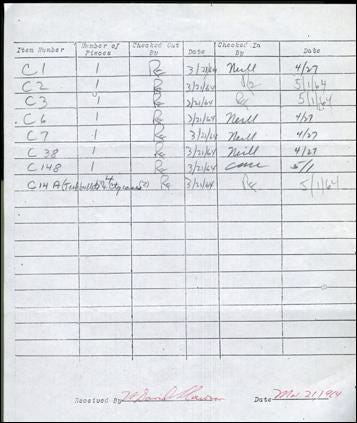 Item Number Number of Pieces Checked Out By Date Checked In By Date
C1 1 3/21/64 Neill 4/27
C2 1 3/21/64 5/1/64
C3 1 3/21/64 5/1/64
C6 1 3/21/64 Neill 4/27
C7 1 3/21/64 Neill 4/27
C38 1 3/21/64 Neill 4/27
C148 1 3/21/64 5/1
C14A 3/21/64 5/1/64
Received By Date Mar. 21, 1964